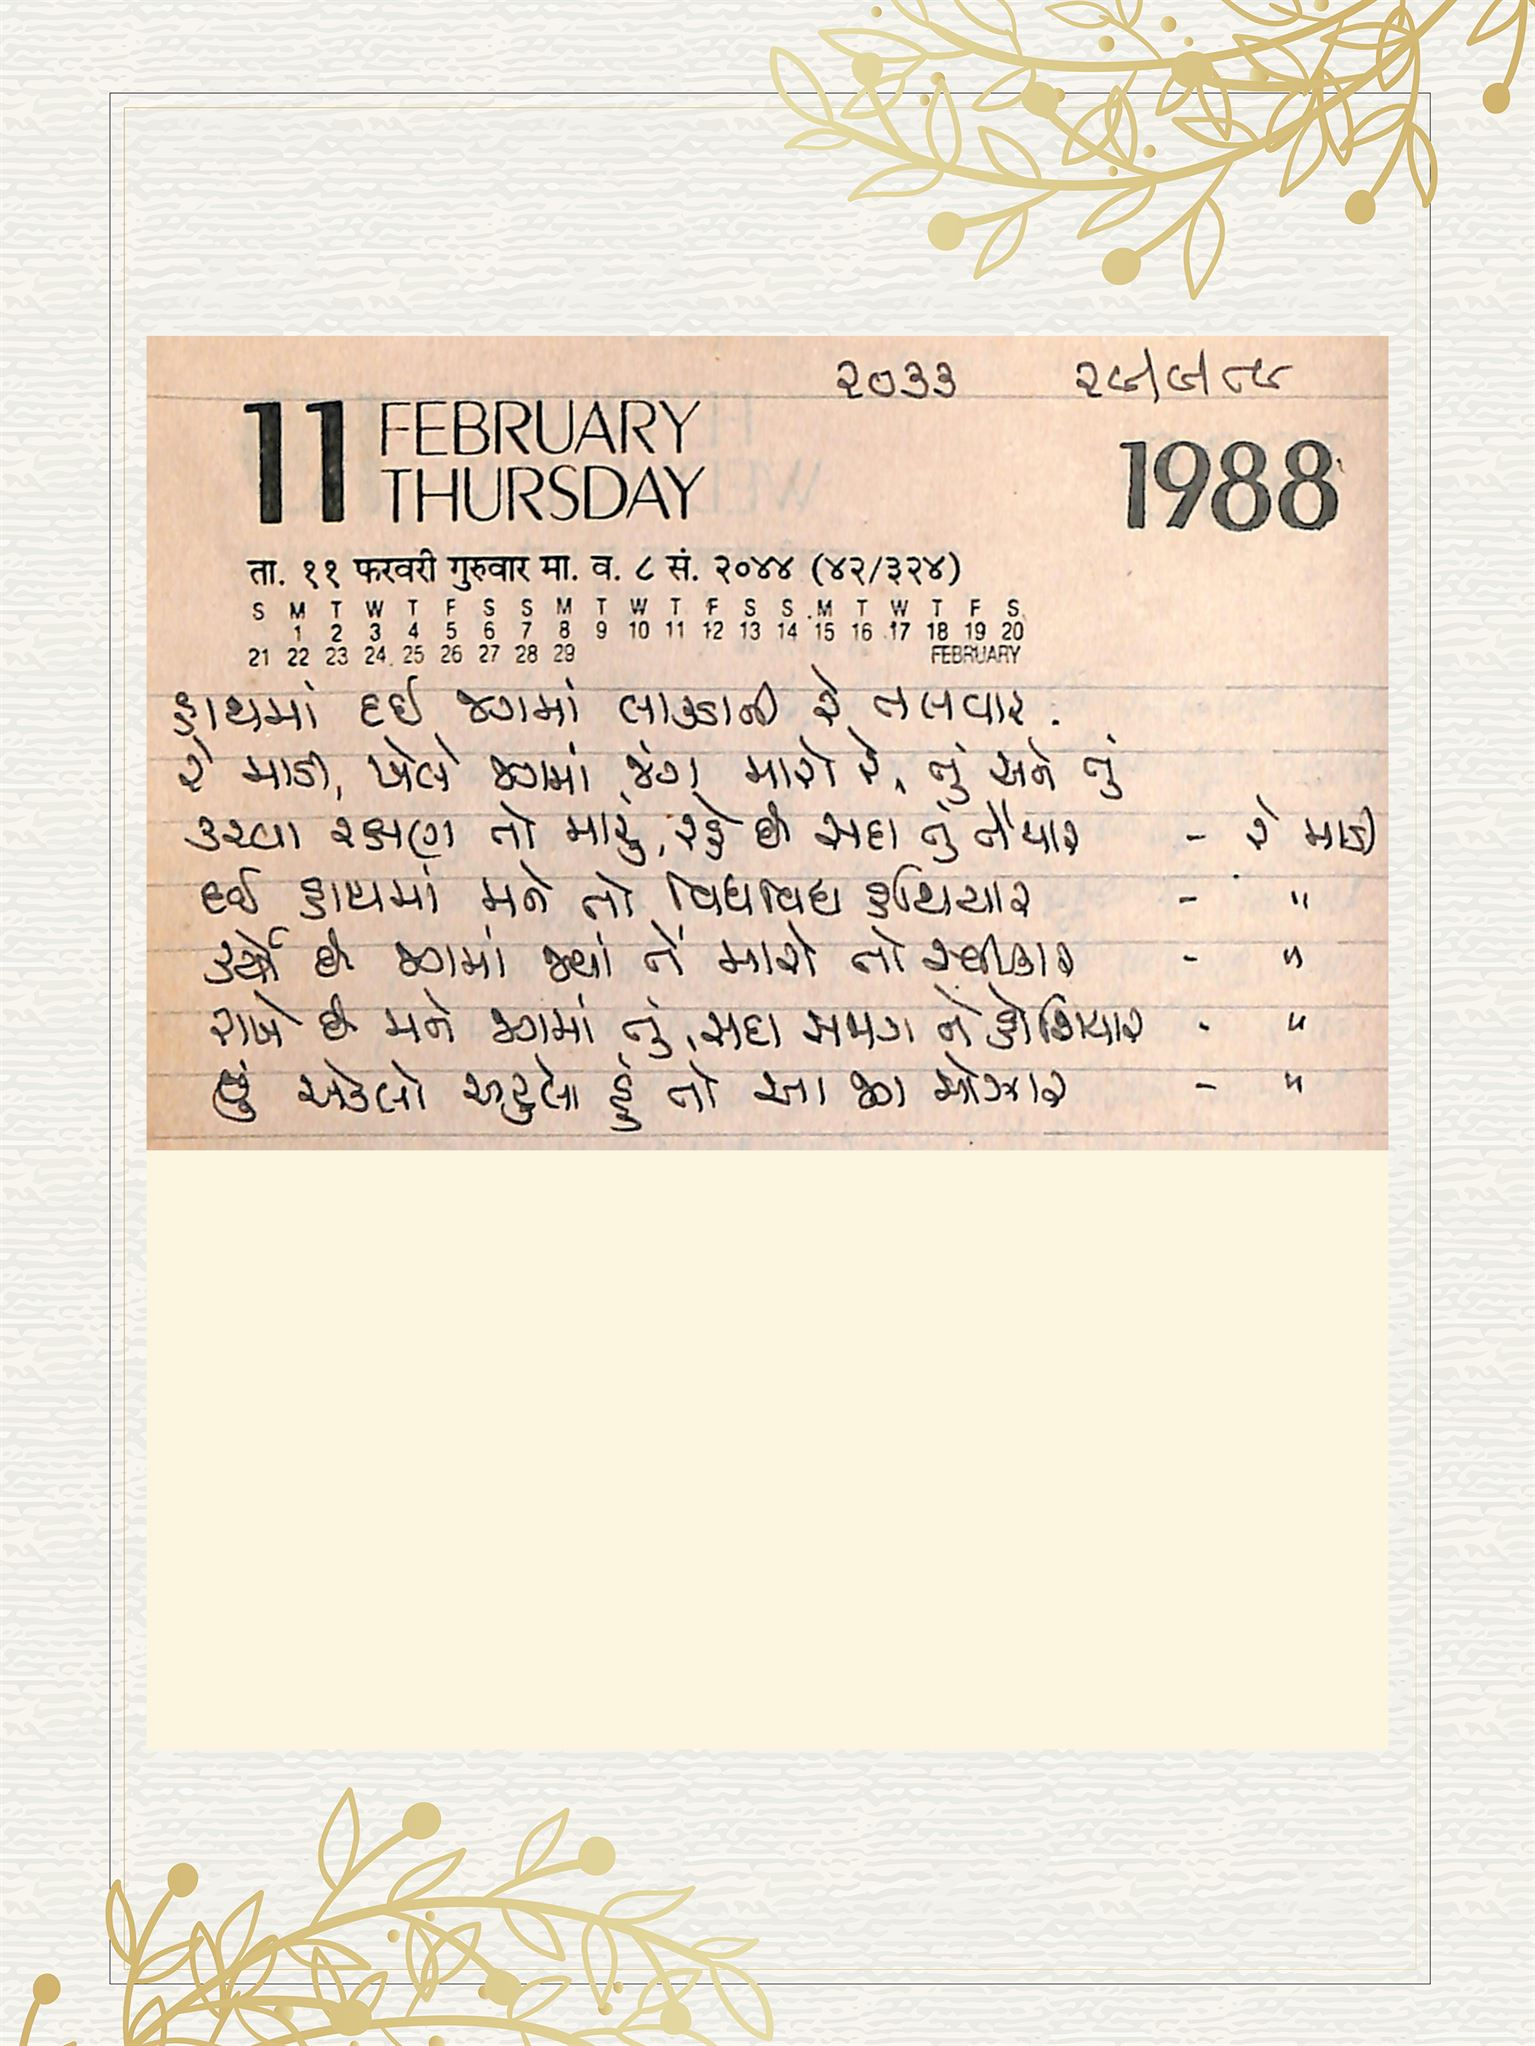 ૨૦૩૩ ૨૯/૯/૮૯
11 FEBRUARY
THURSDAY
1988
ता. ११ फरवरी गुरुवार मा. व. ८ सं. २०४४ (४२/३२४)
S M T W T F S S M T W T F S S M T W T F S
1 2 3 4 5 6 7 8 9 10 11 12 13 14 15 16 17 18 19 20
21 22 23 24 25 26 27 28 29 FEBRUARY
હાથમાં દઈ જગમાં લાકડાની રે તલવાર.
રે માડી, ખેલે જગમાં જંગ મારો રે, તું અને તું
કરવા રક્ષણ તો મારું, રહે છે સદા તું તૈયાર - રે માડી
દઈ હાથમાં મને તો વિધવિધ હથિયાર - "
છે જગમાં જ્યાં તેં મારો તો સ્વીકાર - "
રાખે છે મને જગમાં તું, સદા સમગ ને હોશિયાર - "
છું એકલો અટુલો હું તો આ જગ મોઝાર - "